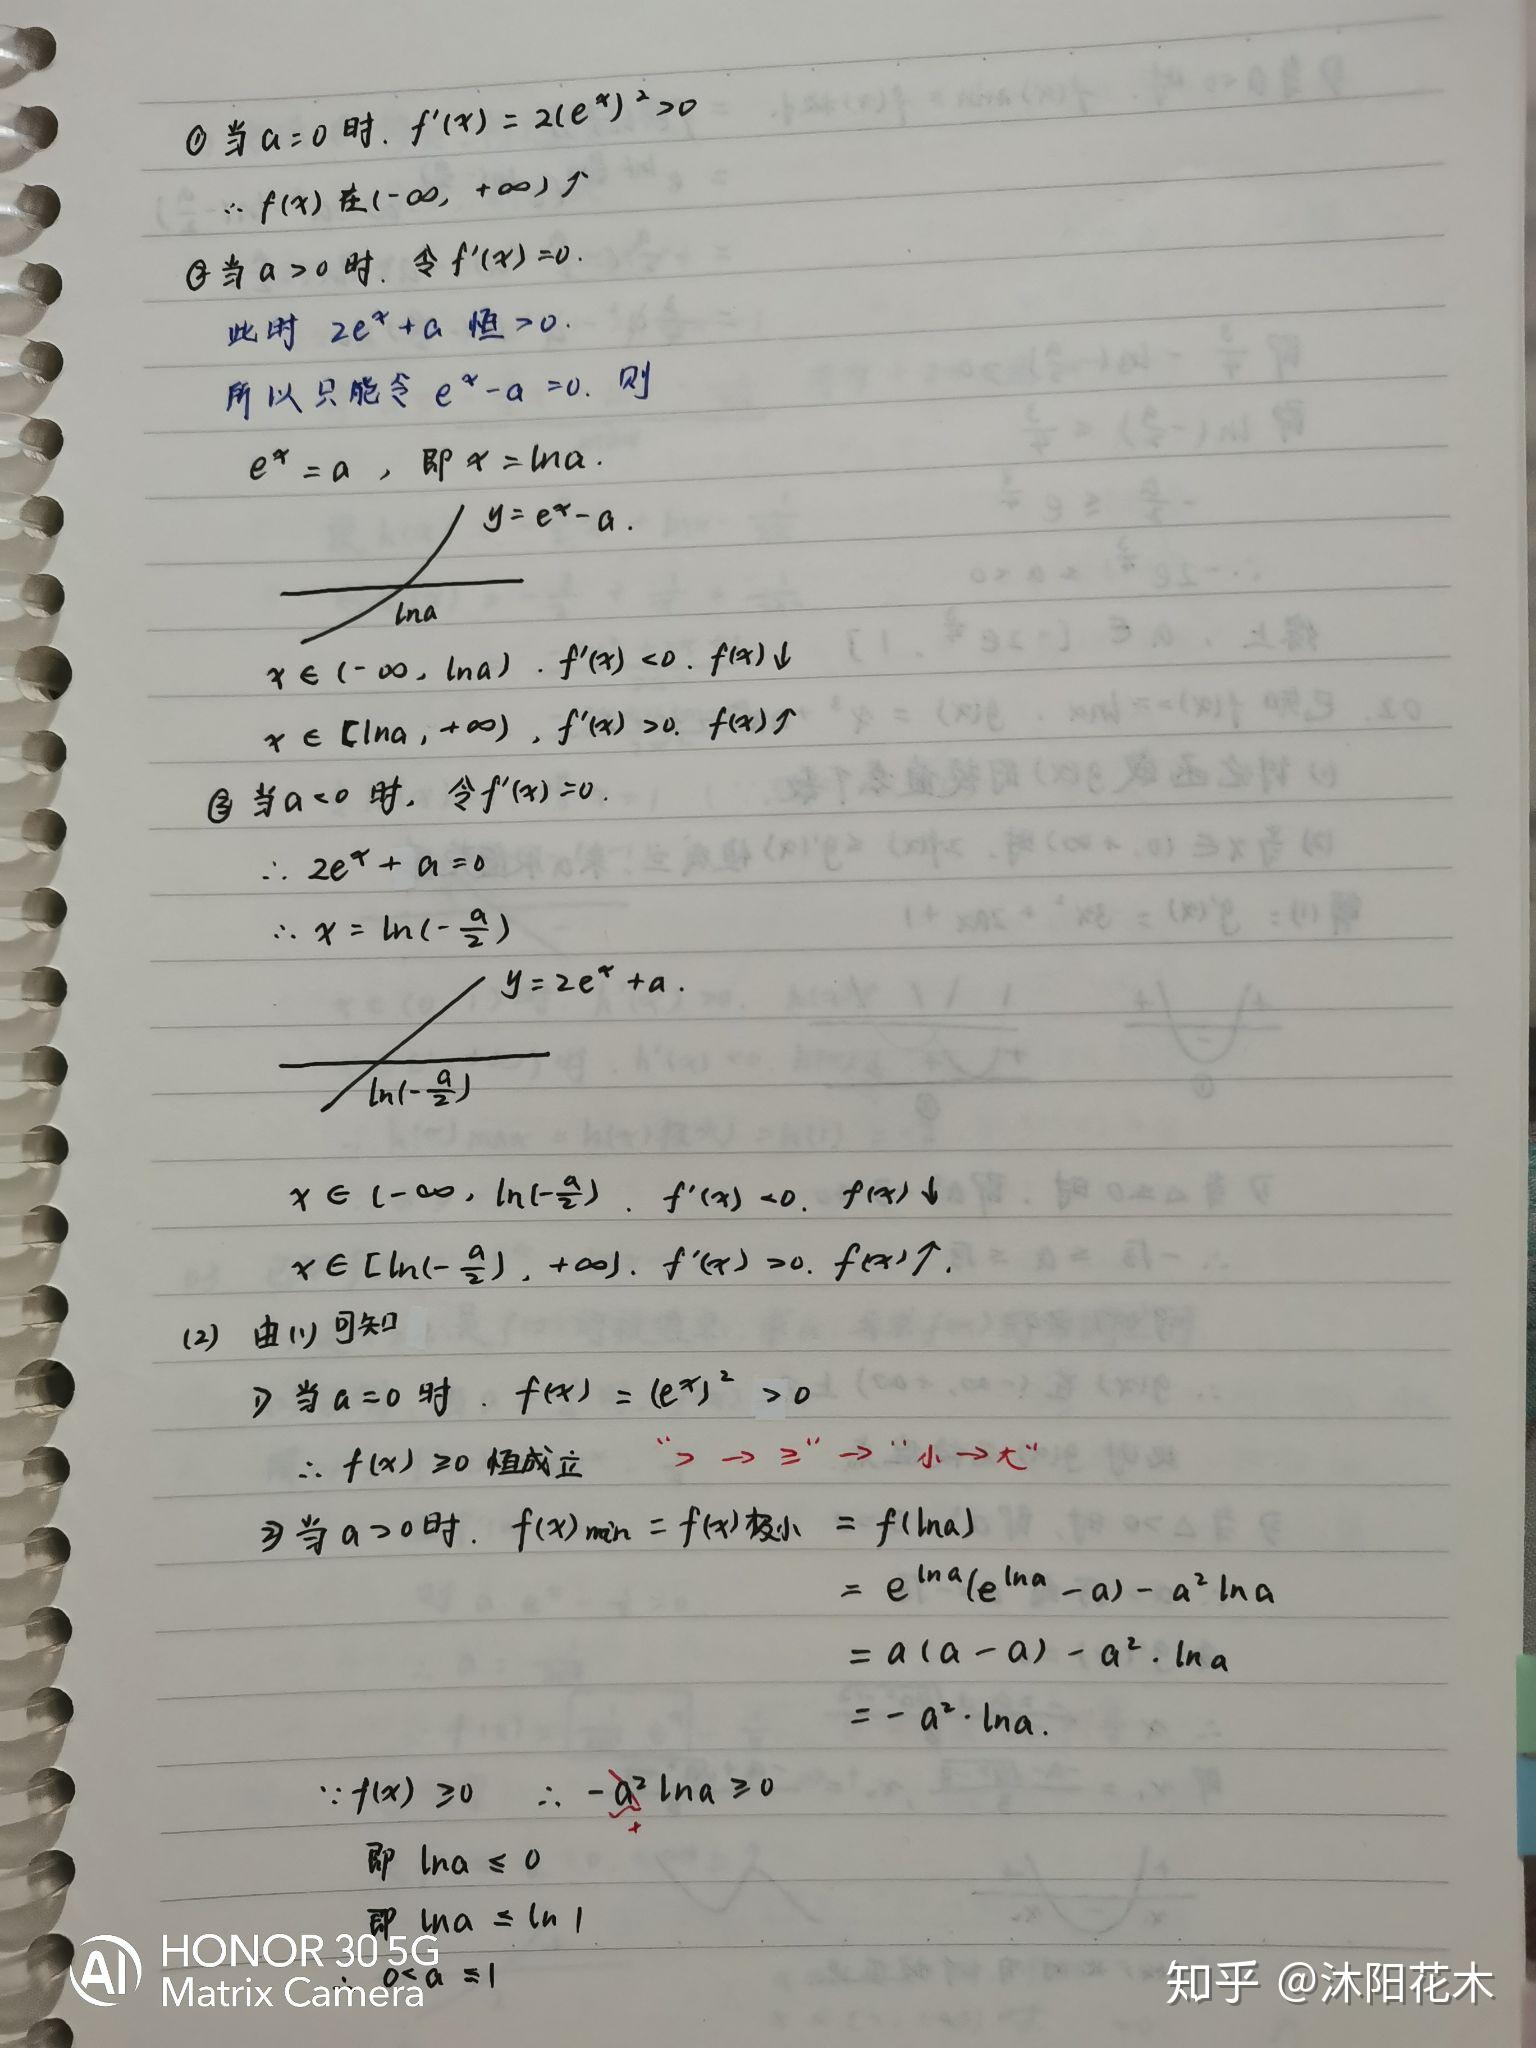 ① 当 a=0 时. f'(x) = 2(eˣ)² >0
∴ f(x) 在(-∞, +∞)↑
② 当 a>0 时. 令 f'(x)=0.
此时 2eˣ+a 恒>0.
所以只能令 eˣ-a=0. 则
eˣ=a, 即 x=lna.
y=eˣ-a.
lna
x∈(-∞, lna). f'(x)<0. f(x)↓
x∈[lna, +∞), f'(x)>0. f(x)↑
③ 当a<0 时, 令f'(x)=0.
∴ 2eˣ+a=0
∴ x=ln(-a/2)
y=2eˣ+a.
ln(-a/2)
x∈(-∞, ln(-a/2). f'(x)<0. f(x)↓
x∈[ln(-a/2), +∞). f'(x)>0. f(x)↑.
(2) 由(1)可知
1) 当 a=0 时. f(x) = (eˣ)² >0
∴ f(x) ≥0 恒成立 “> → ≥” → “小→大”
2) 当 a>0 时. f(x)min = f(x)极小 = f(lna)
= e^lna(e^lna-a)-a²lna
= a(a-a)-a²·lna
= -a²·lna.
∵ f(x) ≥0 ∴ -a²lna≥0
+
即 lna ≤ 0
即 lna ≤ ln1
∴ 0<a≤1
AI HONOR 30 5G
Matrix Camera
知乎 @沐阳花木